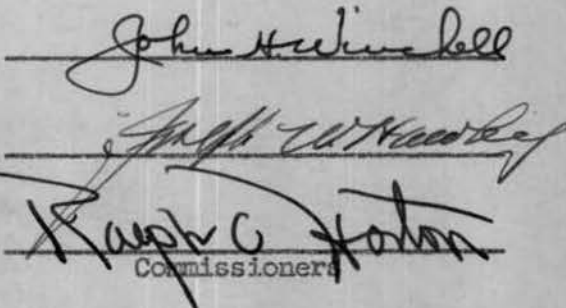 John H. Winchell
Joseph W. Hawley
Ralph C Horton
Commissioners